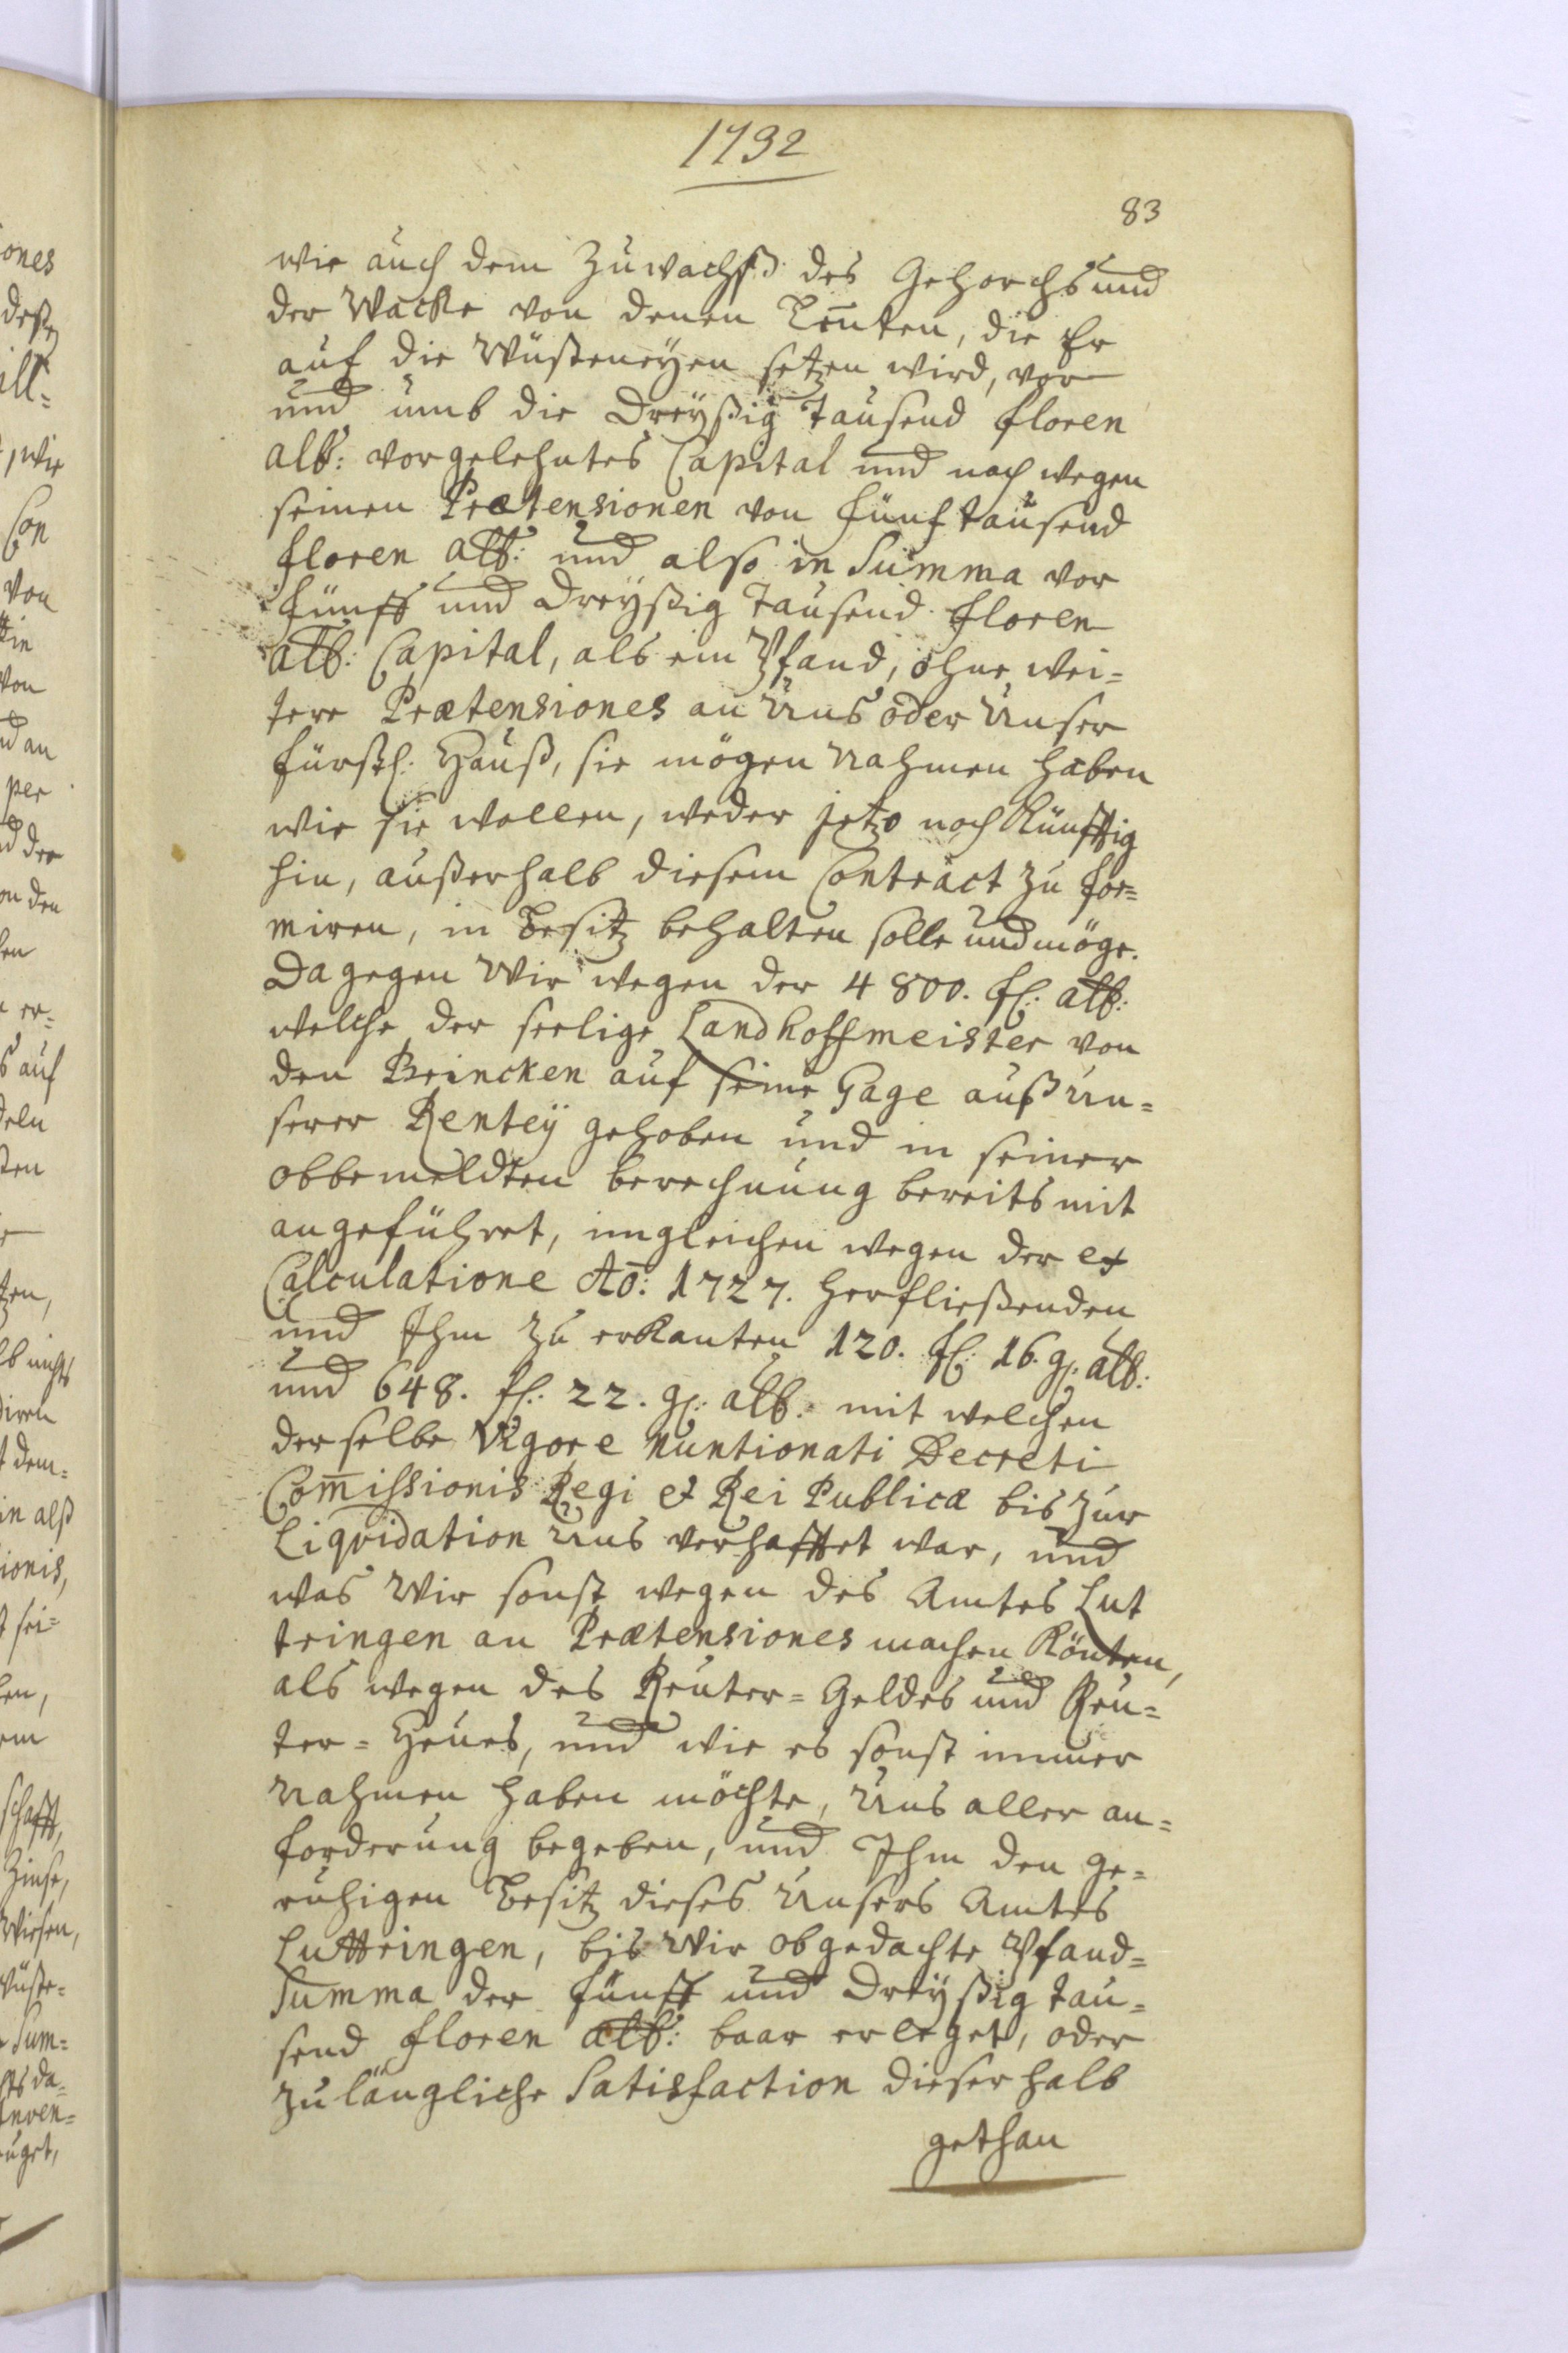 1732
83
wie auch dem Zuwachß des Gehorchs und
der Wacke von denen Leuten, die Er
auf die Wüsteneyen setzen wird, vor
und umb die Dreyßig Tausend floren
alb: vorgelehntes Capital und noch wegen
seinen Prætensionen von fünf tausend
floren alb: und also in Summa vor
fünff und dreyßig Tausend floren
alb: Capital, als ein Pfand, ohne wei=
tere Prætensiones an Uns oder Unser
fürstl: Hauß, sie mögen Nahmen haben
wie sie wollen, weder jetzo noch Künfftig
hin, außerhalb diesem Contract zu for=
miren, in Besitz behalten solle und möge.
Dagegen Wir wegen der 4800. fl: alb:
welche der seelige Landhoffmeister von
den Brincken auf seine Gage auß Un=
serer Rentey gehoben und in seiner
obbemeldten berechnung bereits mit
angeführet, imgleichen wegen der ex
Calculatione Ao: 1727. herfließenden
und Ihm zu erkanten 120. fl: 16. g: alb:
und 648. fl: 22. g: alb: mit welchen
derselbe Vigore nuntionati Decreti
Commissionis Regi et Rei Publicæ bis zur
Liqvidation Uns verhafftet war, und
was Wir sonst wegen des Amtes Lut
tringen an Prætensiones machen Könten,
als wegen des Reuter=Geldes und Reu=
ter=Heues, und wie es sonst immer
Nahmen haben möchte, Uns aller an=
forderung begeben, und Ihm den ge=
ruhigen Besitz dieses Unsers Amtes
Luttringen, bis Wir obgedachte Pfand=
Summa der fünff und Dreyßig tau=
send floren alb: baar erleget, oder
zulängliche Satisfaction dieserhalb
gethan